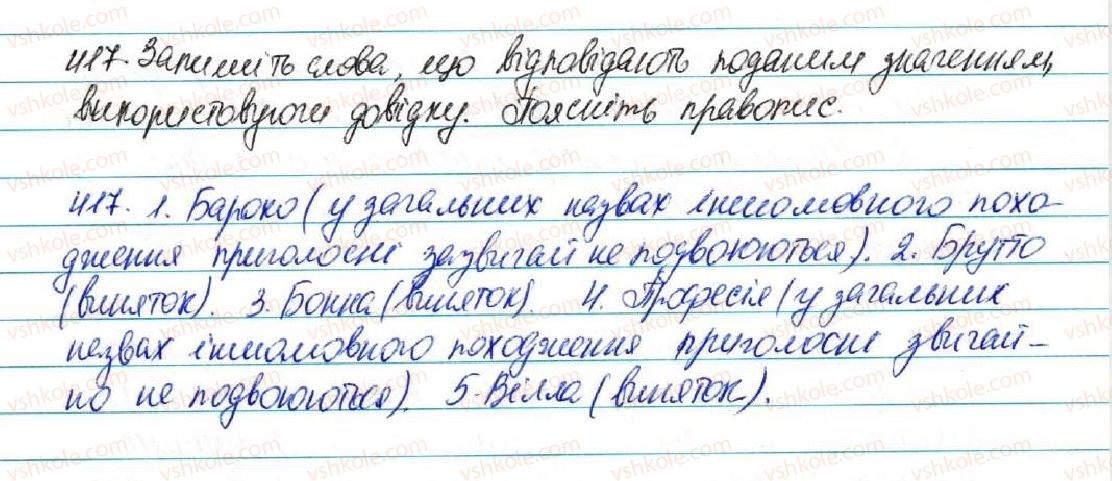 417. Запишіть слова, що відповідають поданим значенням,
використовуючи довідку. Поясніть правопис.
417. 1. Бароко (у загальних назвах іншомовного похо-
дження приголосні зазвичай не подвоюються). 2. Брутто
(виняток). 3. Бонна (виняток). 4. Професія (у загальних
назвах іншомовного походження приголосні звичай-
но не подвоюються). 5. Вілла (виняток).